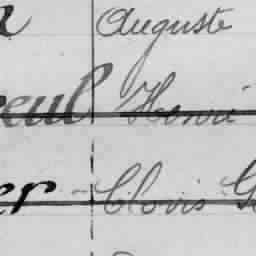 Auguste
eul Henri
er Clovis G